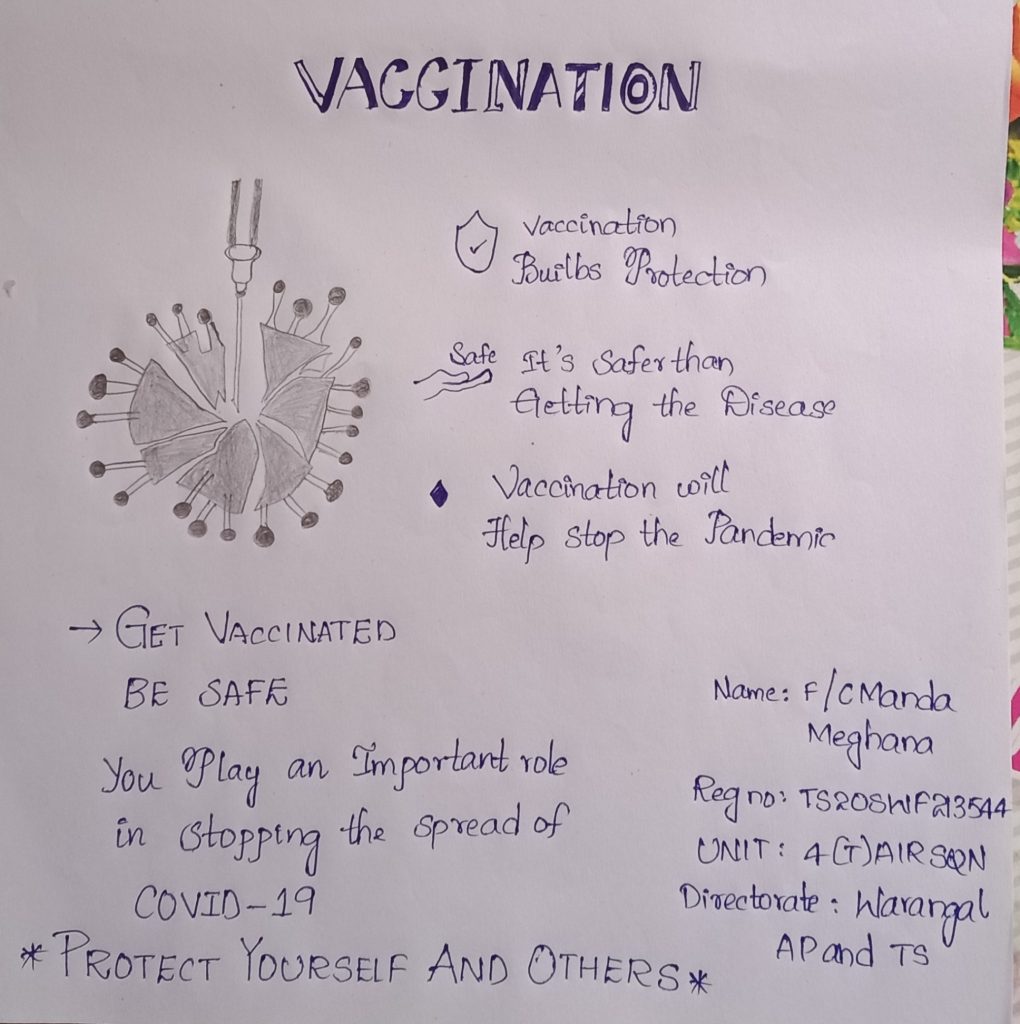 VACCINATION
Vaccination
Builbs Protection
Safe It's Safer than
Getting the Disease
Vaccination will
Help stop the Pandemic
→ GET VACCINATED
BE SAFE
You Play an Important role
in Stopping the spread of
COVID-19
*PROTECT YOURSELF AND OTHERS*
Name: F/C Manda
Meghana
Reg no: TS20SWF213544
UNIT: 4(T)AIR SQN
Directorate: Warangal
AP and TS